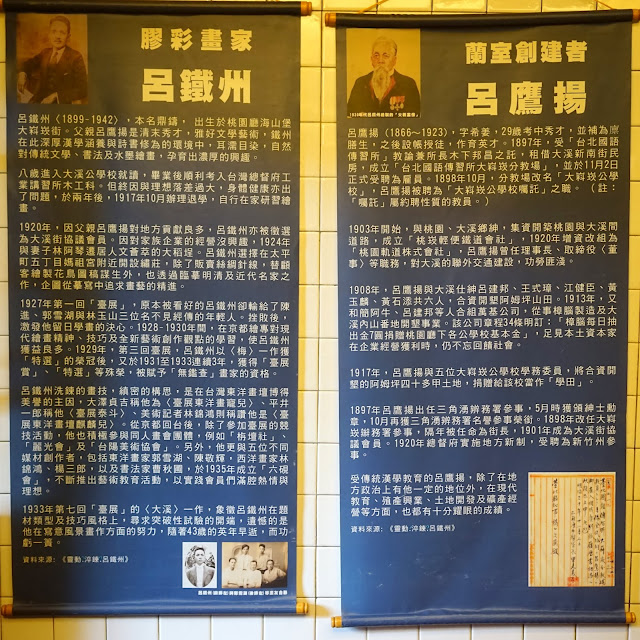 膠彩畫家
呂鐵州
呂鐵州〈1899-1942〉，本名鼎鑄，出生於桃園廳海山堡
大嵙崁街。父親呂鷹揚是清末秀才，雅好文學藝術，鐵州
在此深厚漢學涵養與詩書修為的環境中，耳濡目染，自然
對傳統文學、書法及水墨繪畫，孕育出濃厚的興趣。
八歲進入大溪公學校就讀，畢業後順利考入台灣總督府工
業講習所木工科。但終因與理想落差過大，身體健康亦出
了問題，於兩年後，1917年10月辦理退學，自行在家研習繪
畫。
1920年，因父親呂鷹揚對地方貢獻良多，呂鐵州亦被徵選
為大溪街協議會員。因對家族企業的經營沒興趣，1924年
與妻子林阿琴遷居人文薈萃的大稻埕。呂鐵州選擇在太平
町五丁目媽祖宮附近開設繡莊，除了販賣絲綢針線，替顧
客繪製花鳥圖稿謀生外，也透過臨摹明清及近代名家之
作，企圖從摹寫中追求畫藝的精進。
1927年第一回「臺展」，原本被看好的呂鐵州卻輸給了陳
進、郭雪湖與林玉山三位名不見經傳的年輕人。挫敗後，
激發他留日學畫的決心。1928-1930年間，在京都繪專對現
代繪畫精神、技巧及全新藝術創作觀點的學習，使呂鐵州
獲益良多。1929年，第三回臺展，呂鐵州以〈梅〉一作獲
「特選」的榮冠後，又於1931至1933連續3年，獲得「臺展
賞」、「特選」等殊榮，被賦予「無鑑查」畫家的資格。
呂鐵州洗鍊的畫技，縝密的構思，是在台灣東洋畫壇博得
美譽的主因，大澤貞吉稱他為《臺展東洋畫寵兒》、平井
一郎稱他《臺展泰斗》、美術記者林錦鴻則稱讚他是《臺
展東洋畫壇麒麟兒》。從京都回台後，除了參加臺展的競
技活動，他也積極參與同人畫會團體，例如「栴壇社」、
「麗光會」及「台陽美術協會」。另外，他更與五位不同
媒材創作者，包括東洋畫家郭雪湖、陳敬輝，西洋畫家林
錦鴻、楊三郎，以及書法家曹秋圃，於1935年成立「六硯
會」，不斷推出藝術教育活動，以實踐會員們滿腔熱情與
理想。
1933年第七回「臺展」的〈大溪〉一作，象徵呂鐵州在題
材類型及技巧風格上，尋求突破性試驗的開端，遺憾的是
他在寫意風景畫作方面的努力，隨著43歲的英年早逝，而功
虧一簣。
資料來源：《靈動.淬鍊.呂鐵州》
蘭室創建者
呂鷹揚
呂鷹揚（1866～1923），字希姜，29歲考中秀才，並補為廩
膳生，之後設帳授徒，作育英才。1897年，受「台北國語
傳習所」教諭兼所長木下邦昌之託，租借大溪新南街民
房，成立「台北國語傳習所大嵙崁分教場」，並於11月2日
正式受聘為雇員。1898年10月，分教場改名「大嵙崁公學
校」，呂鷹揚被聘為「大嵙崁公學校囑託」之職。（註：
「囑託」屬約聘性質的教員。）
1903年開始，與桃園、大溪鄉紳，集資開築桃園與大溪間
道路，成立「桃崁輕便鐵道會社」，1920年增資改組為
「桃園軌道株式會社」，呂鷹揚曾任理事長、取締役〈董
事〉等職務，對大溪的聯外交通建設，功勞匪淺。
1908年，呂鷹揚與大溪仕紳呂建邦、王式璋、江健臣、黃
玉麟、黃石添共六人，合資開墾阿姆坪山田。1913年，又
和簡阿牛、呂建邦等人合組萬基公司，從事樟腦製造及大
溪內山番地開墾事業。該公司章程34條明訂：「樟腦每日抽
出金7圓捐贈桃園廳下各公學校基本金」，足見本土資本家
在企業經營獲利時，仍不忘回饋社會。
1917年，呂鷹揚與五位大嵙崁公學校學務委員，將合資開
墾的阿姆坪四十多甲土地，捐贈給該校當作「學田」。
1897年呂鷹揚出任三角湧辨務署參事，5月時獲頒紳士勳
章，10月再獲三角湧辨務署名譽參事銜。1898年改任大嵙
崁辦務署參事，隔年被任命為街長，1901年成為大溪街協
議會員。1920年總督府實施地方新制，受聘為新竹州參
事。
受傳統漢學教育的呂鷹揚，除了在地
方政治上有他一定的地位外，在現代
教育、殖產興業、土地開發及礦產經
營等方面，也都有十分耀眼的成績。
資料來源：《靈動.淬鍊.呂鐵州》